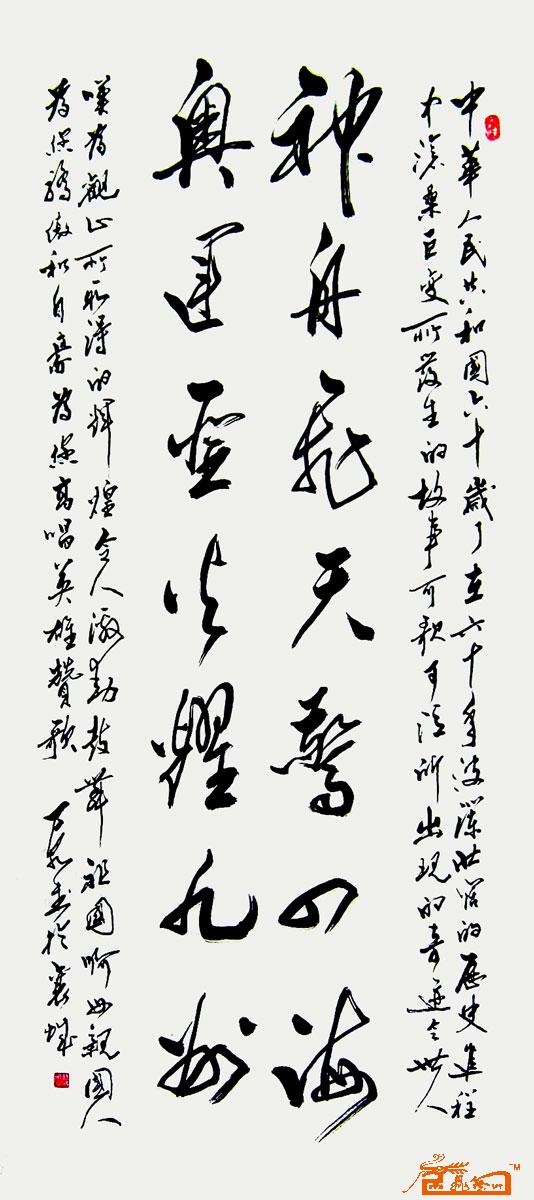 中華人民共和國六十歲了在六十年波瀾壯闊的歷史進程
中滄桑巨變所發生的故事可歌可泣所出現的奇迹令世人
神舟飛天驚四海
奥運聖火耀九州
嘆為觀止所取得的輝煌令人激動鼓舞祖國啊母親國人
為您驕傲和自豪為您高唱英雄贊歌 書於襄城